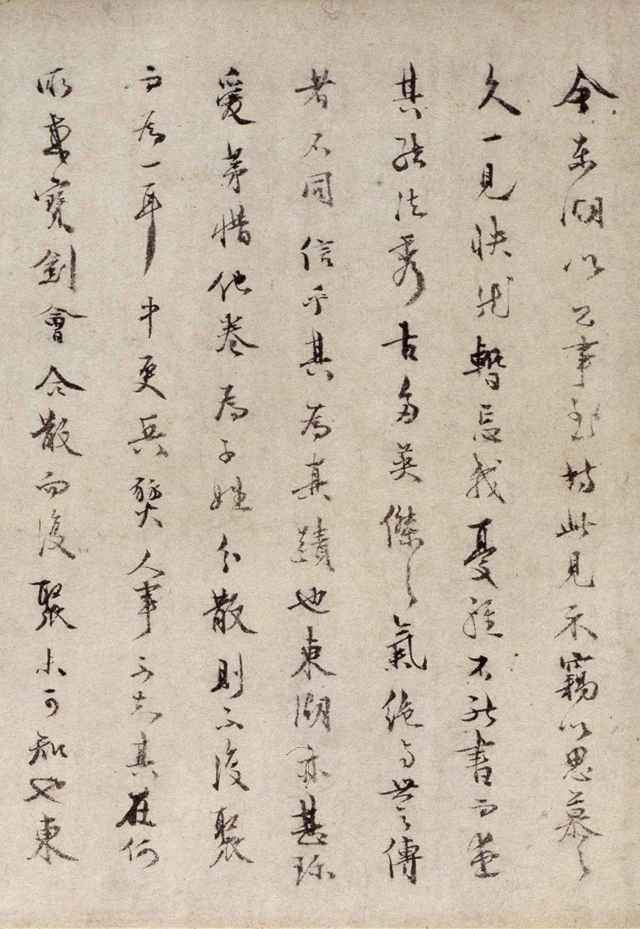 今東湖以公事至持此見示竊以思慕之
久一見快然暫忘我憂雖不能書而望
其骯法秀古多英傑之氣絶与世之傳
者不同信乎其為真蹟也東湖亦甚珎
愛第惜他卷為子姓分散則不復聚
而為一耳中更兵燹人事不知其在何
所盖寳劍會合散而復聚未可知也東